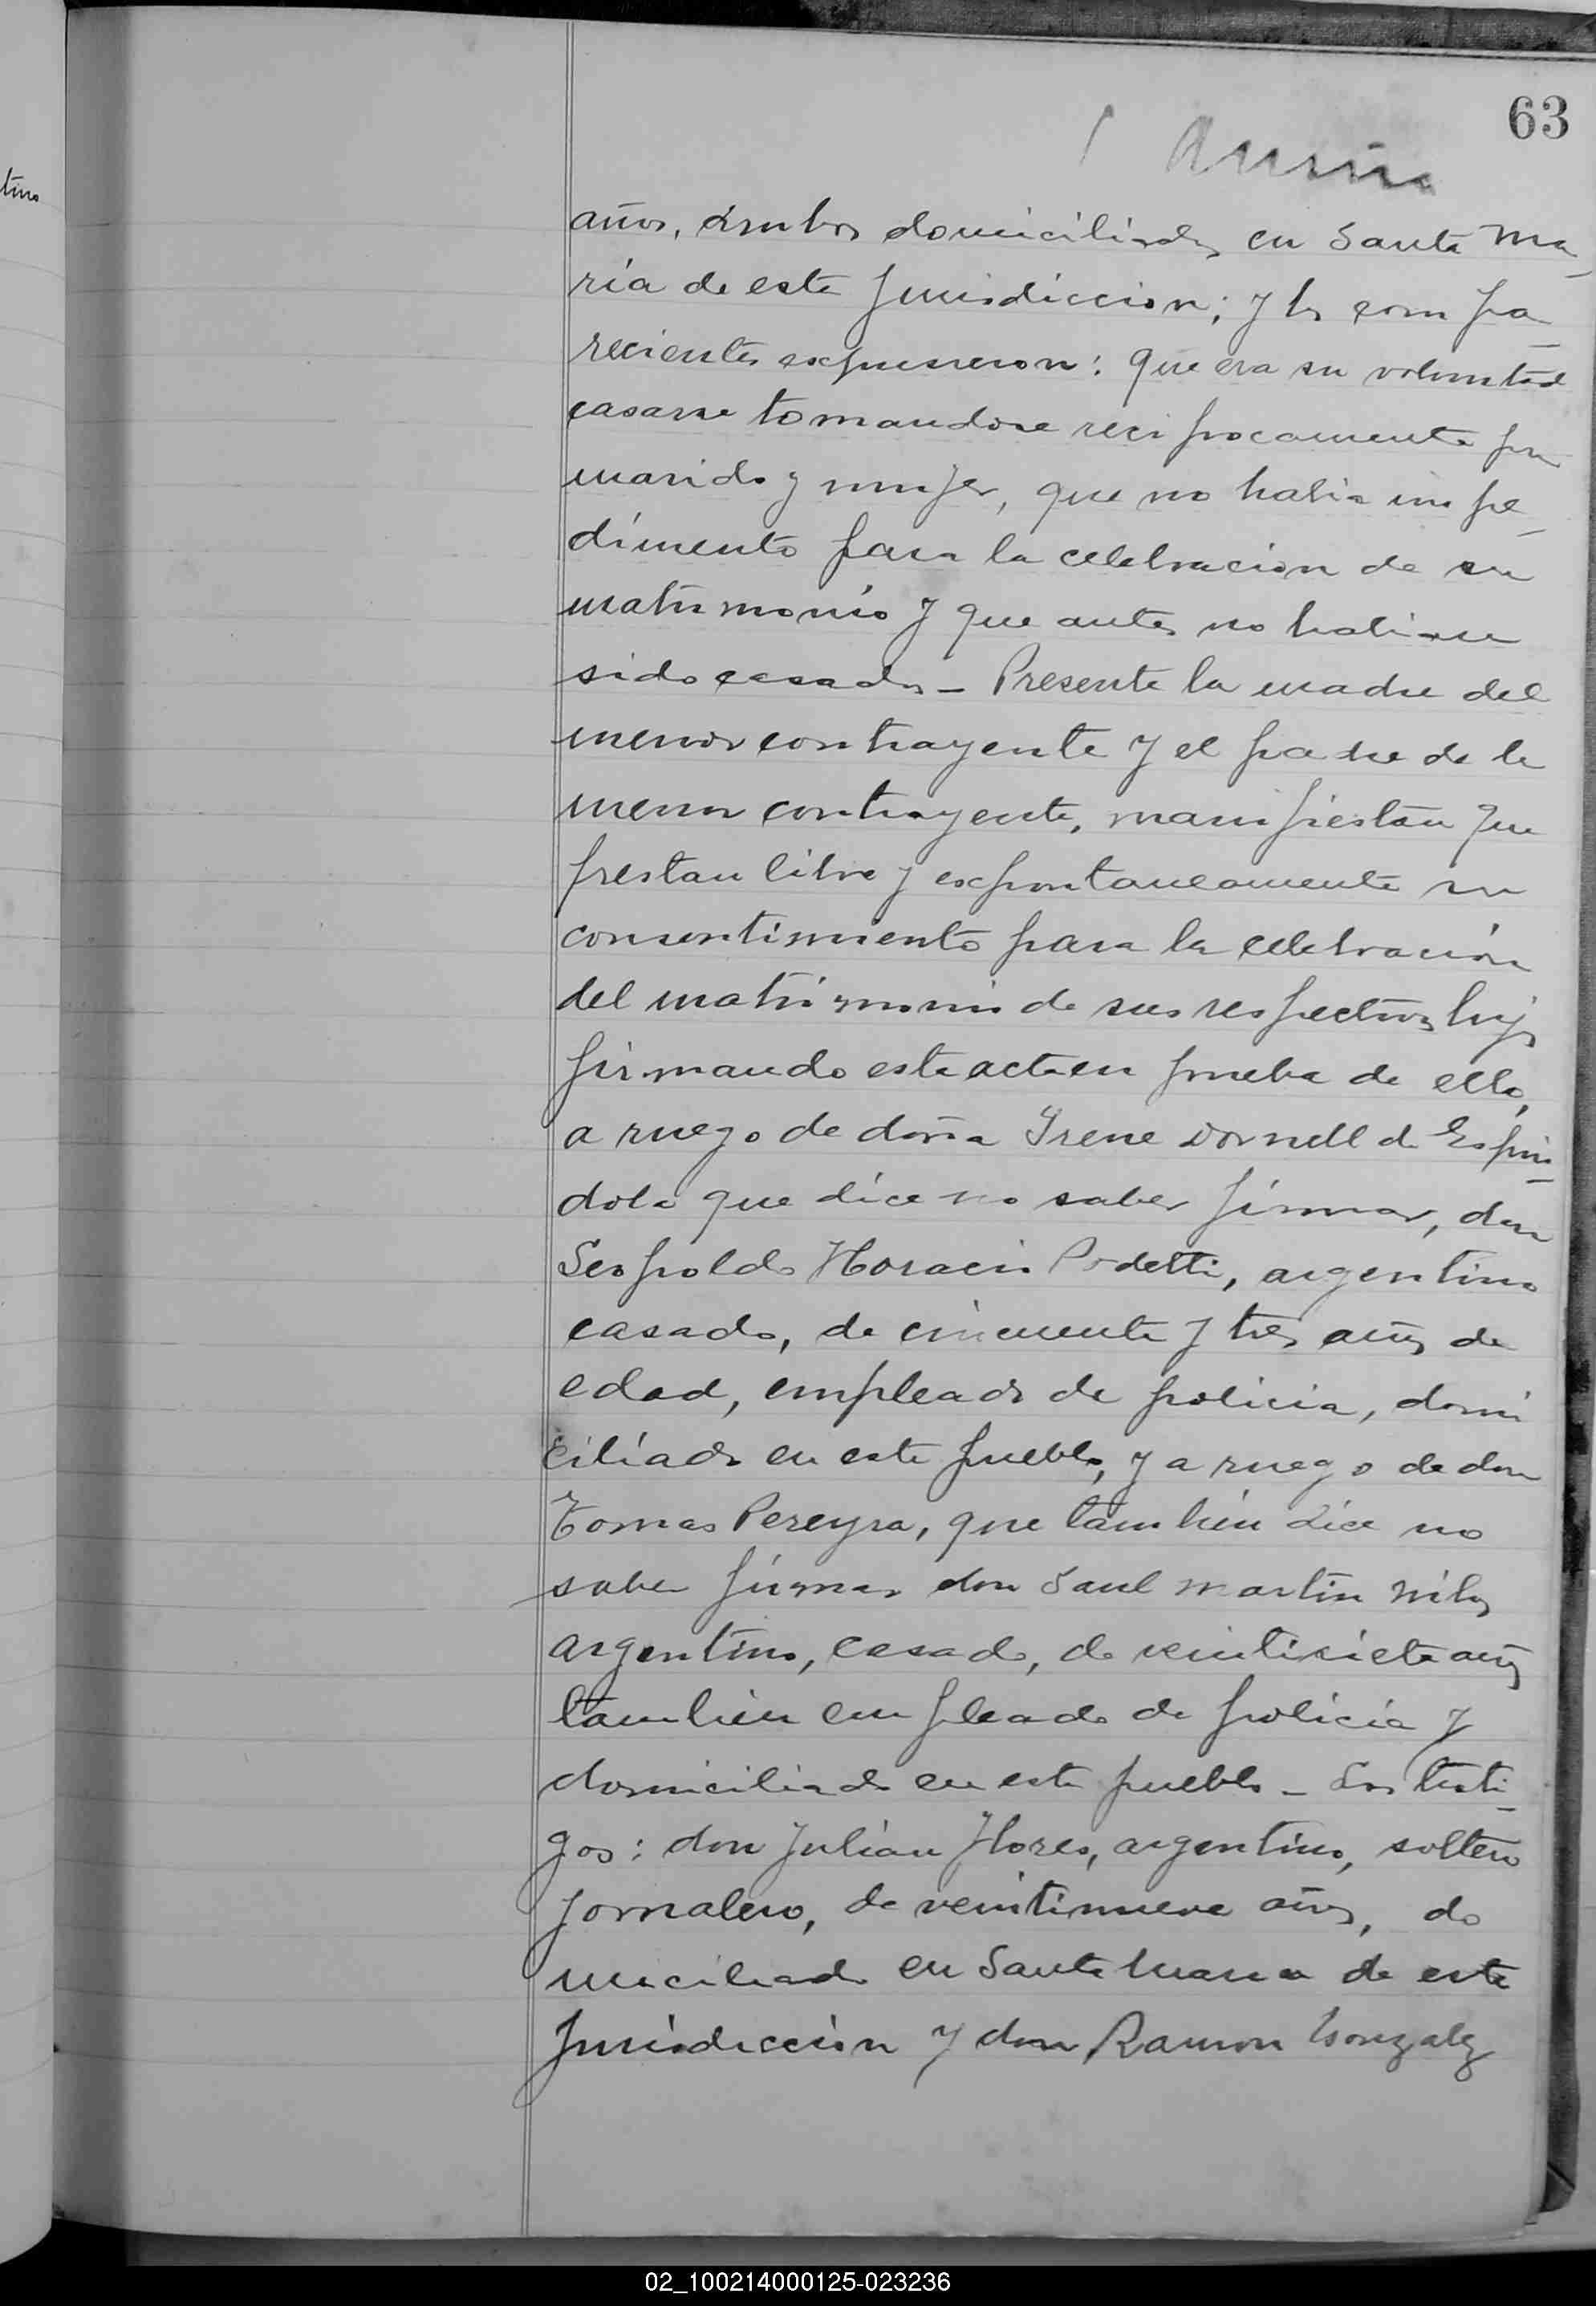 63
años, ambos domiciliados en Santa Ma-
ría de esta jurisdiccion; y los compa-
recientes expusieron: que era su voluntad
casarse tomandose reciprocamente por
marido y mujer, que no habia impe-
dimento para la celebracion de su
matrimonio y que antes no habian
sido casados - Presente la madre del
menor contrayente y el padre de la
menor contrayente, manifiestan que
prestan libre y expontaneamente su
consentimiento para la celebración
del matrimonio de sus respectivos hijos
firmando esta acta en prueba de ello,
a ruego de doña Irene Dornell de Espin-
dola que dice no saber firmar, don
Leopoldo Horacio Podetti, argentino
casado, de cincuenta y tres años de
edad, empleado de policia, domi
ciliado en este pueblo, y a ruego de don
Tomas Pereyra, que tambien dice no
saber firmar don Saul Martin
argentino, casado, de veintisiete años
tambien empleado de policia y
domiciliado en este pueblo - Los testi-
gos: don Julian Flores, argentino, soltero
jornalero, de veintinueve años, do
miciliado en Santa Maria de esta
jurisdiccion y don Ramon Gonzalez
tino
02_100214000125-023236